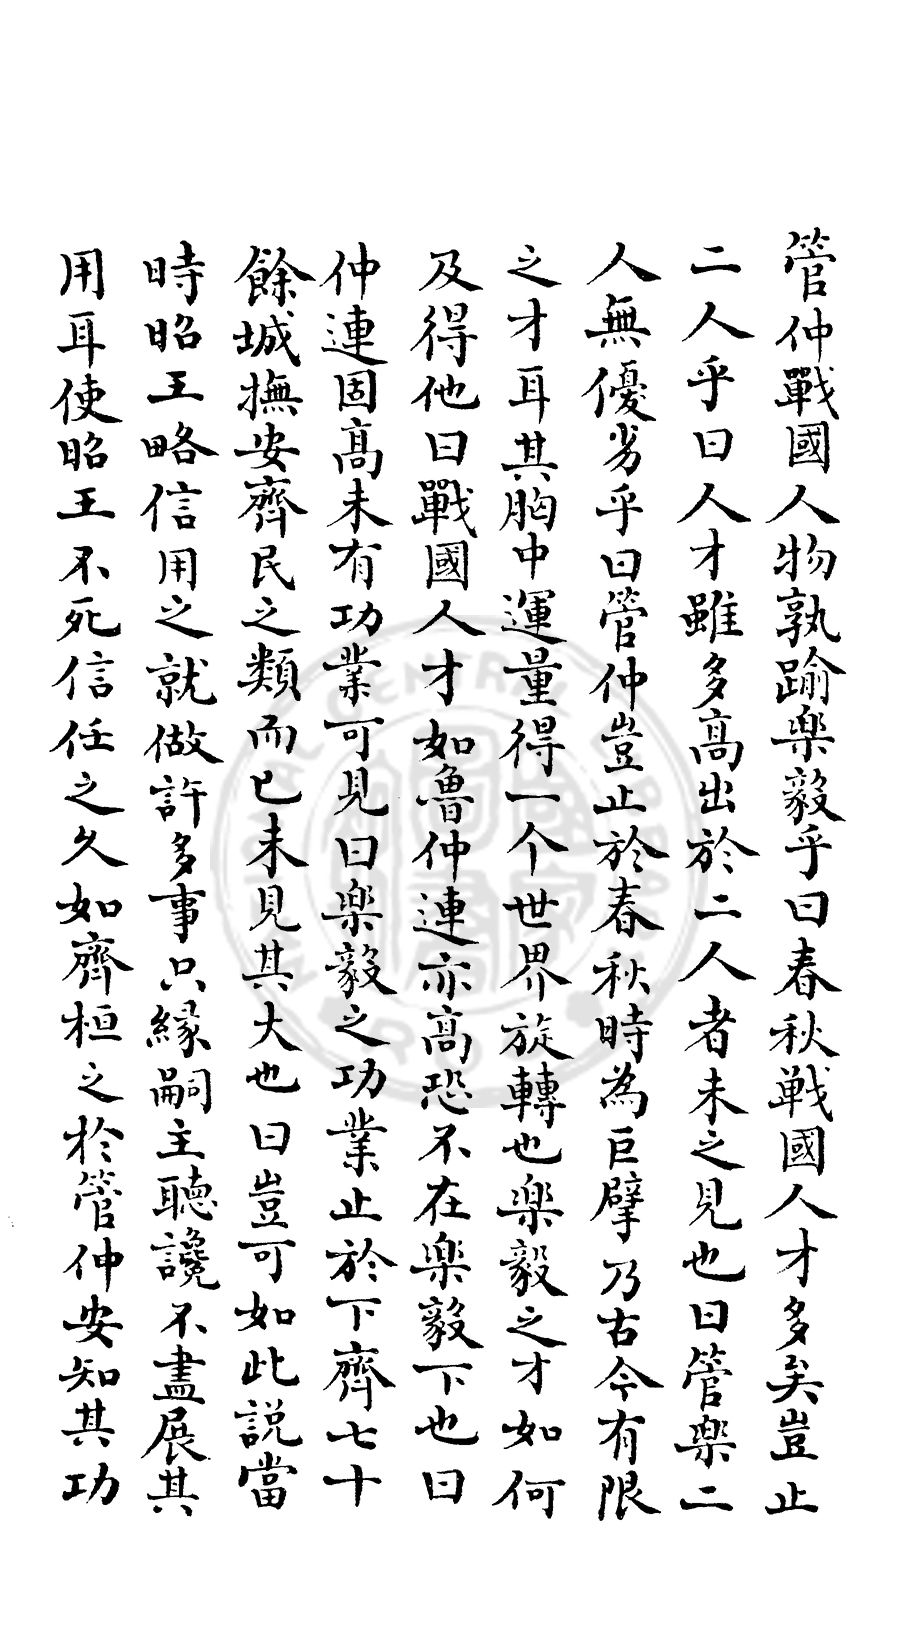 管仲戰國人物孰踰樂毅乎曰春秋戰國人才多矣豈止
二人乎曰人才雖多高出於二人者未之見也曰管樂二
人無優劣乎曰管仲豈止於春秋時為巨擘乃古今有限
之才耳其胸中運量得一个世界旋轉也樂毅之才如何
及得他曰戰國人才如魯仲連亦高恐不在樂毅下也曰
仲連固高未有功業可見曰樂毅之功業止於下齊七十
餘城撫安齊民之類而已未見其大也曰豈可如此說當
時昭王略信用之就做許多事只緣嗣主聽讒不盡展其
用耳使昭王不死信任之久如齊桓之於管仲安知其功